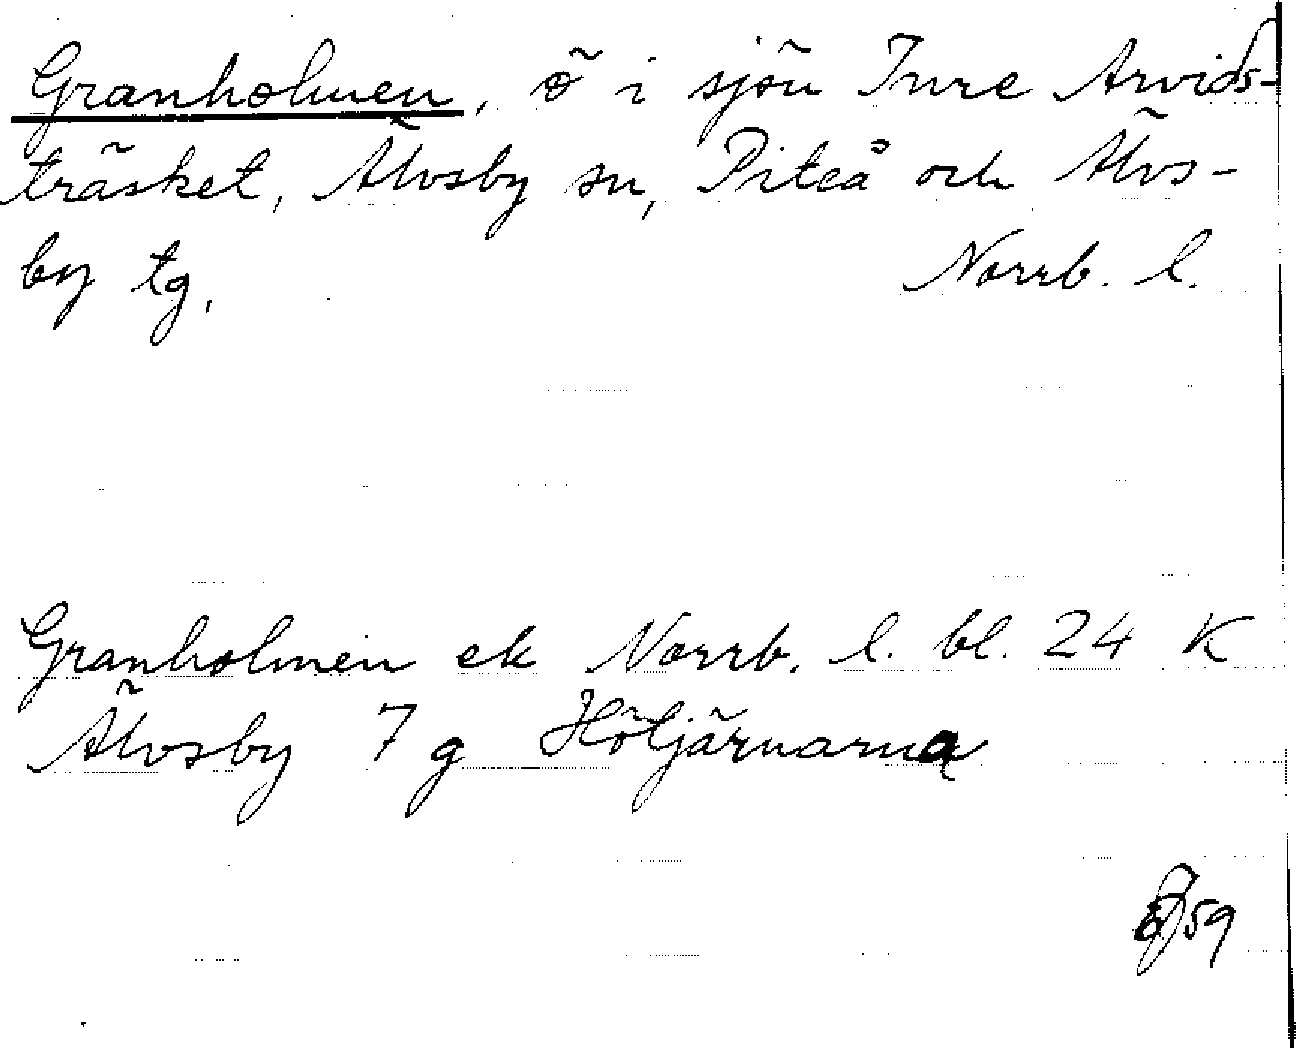 Granholmen, ö i sjön Inre Arvids-
träsket, Älvsby sn, Piteå och Älvs-
by tg. Norrb. l.
Granholmen ek Norrb. l. bl. 24 K
Älvsby 7 g Höljärnarna
59